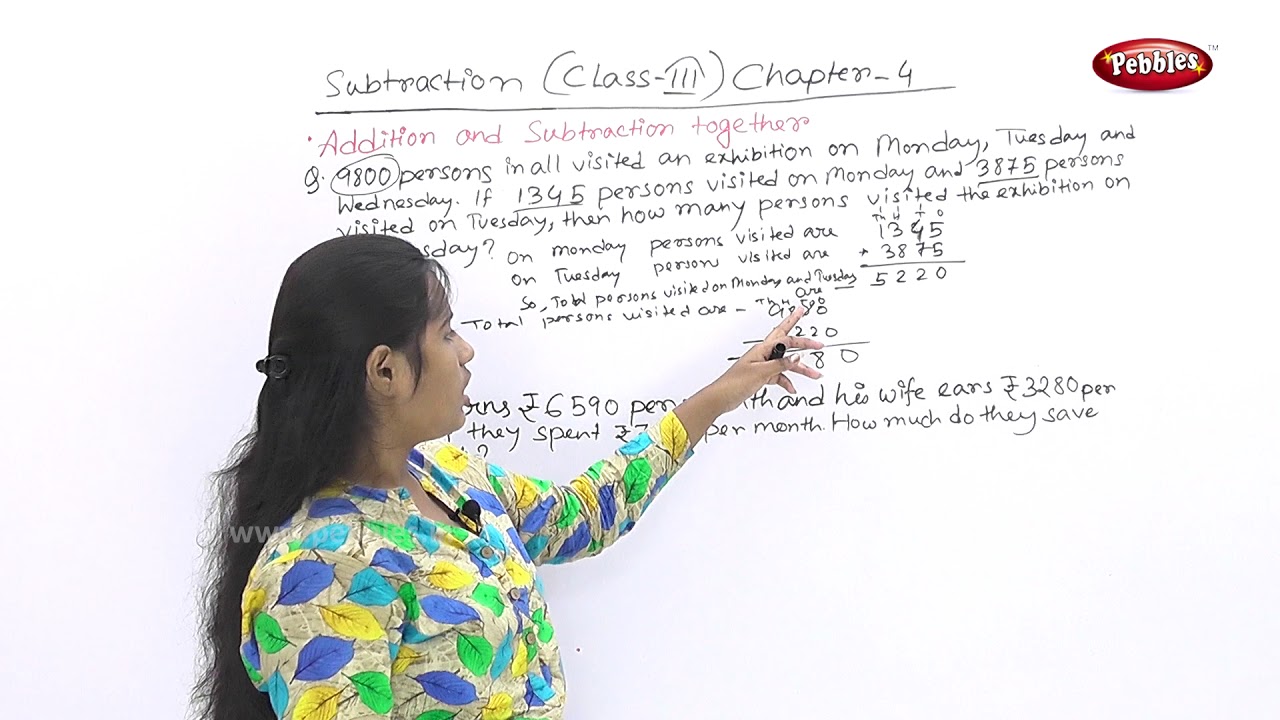 Pebbles™
Subtraction (Class-III) Chapter-4
• Addition and Subtraction together
Q. 9800 persons in all visited an exhibition on Monday, Tuesday and
Wednesday. If 1345 persons visited on Monday and 3875 persons
visited on Tuesday, then how many persons visited the exhibition on
sday?
Th H T O
On monday persons visited are 1345
On Tuesday person visited are + 3875
So, Total persons visited on Monday and Tuesday are 5220
Th H T O
Total persons visited are -
220
80
rns ₹6590 per th and his wife ears ₹3280 per
they spent ₹ per month. How much do they save
?
www.pebbles.in